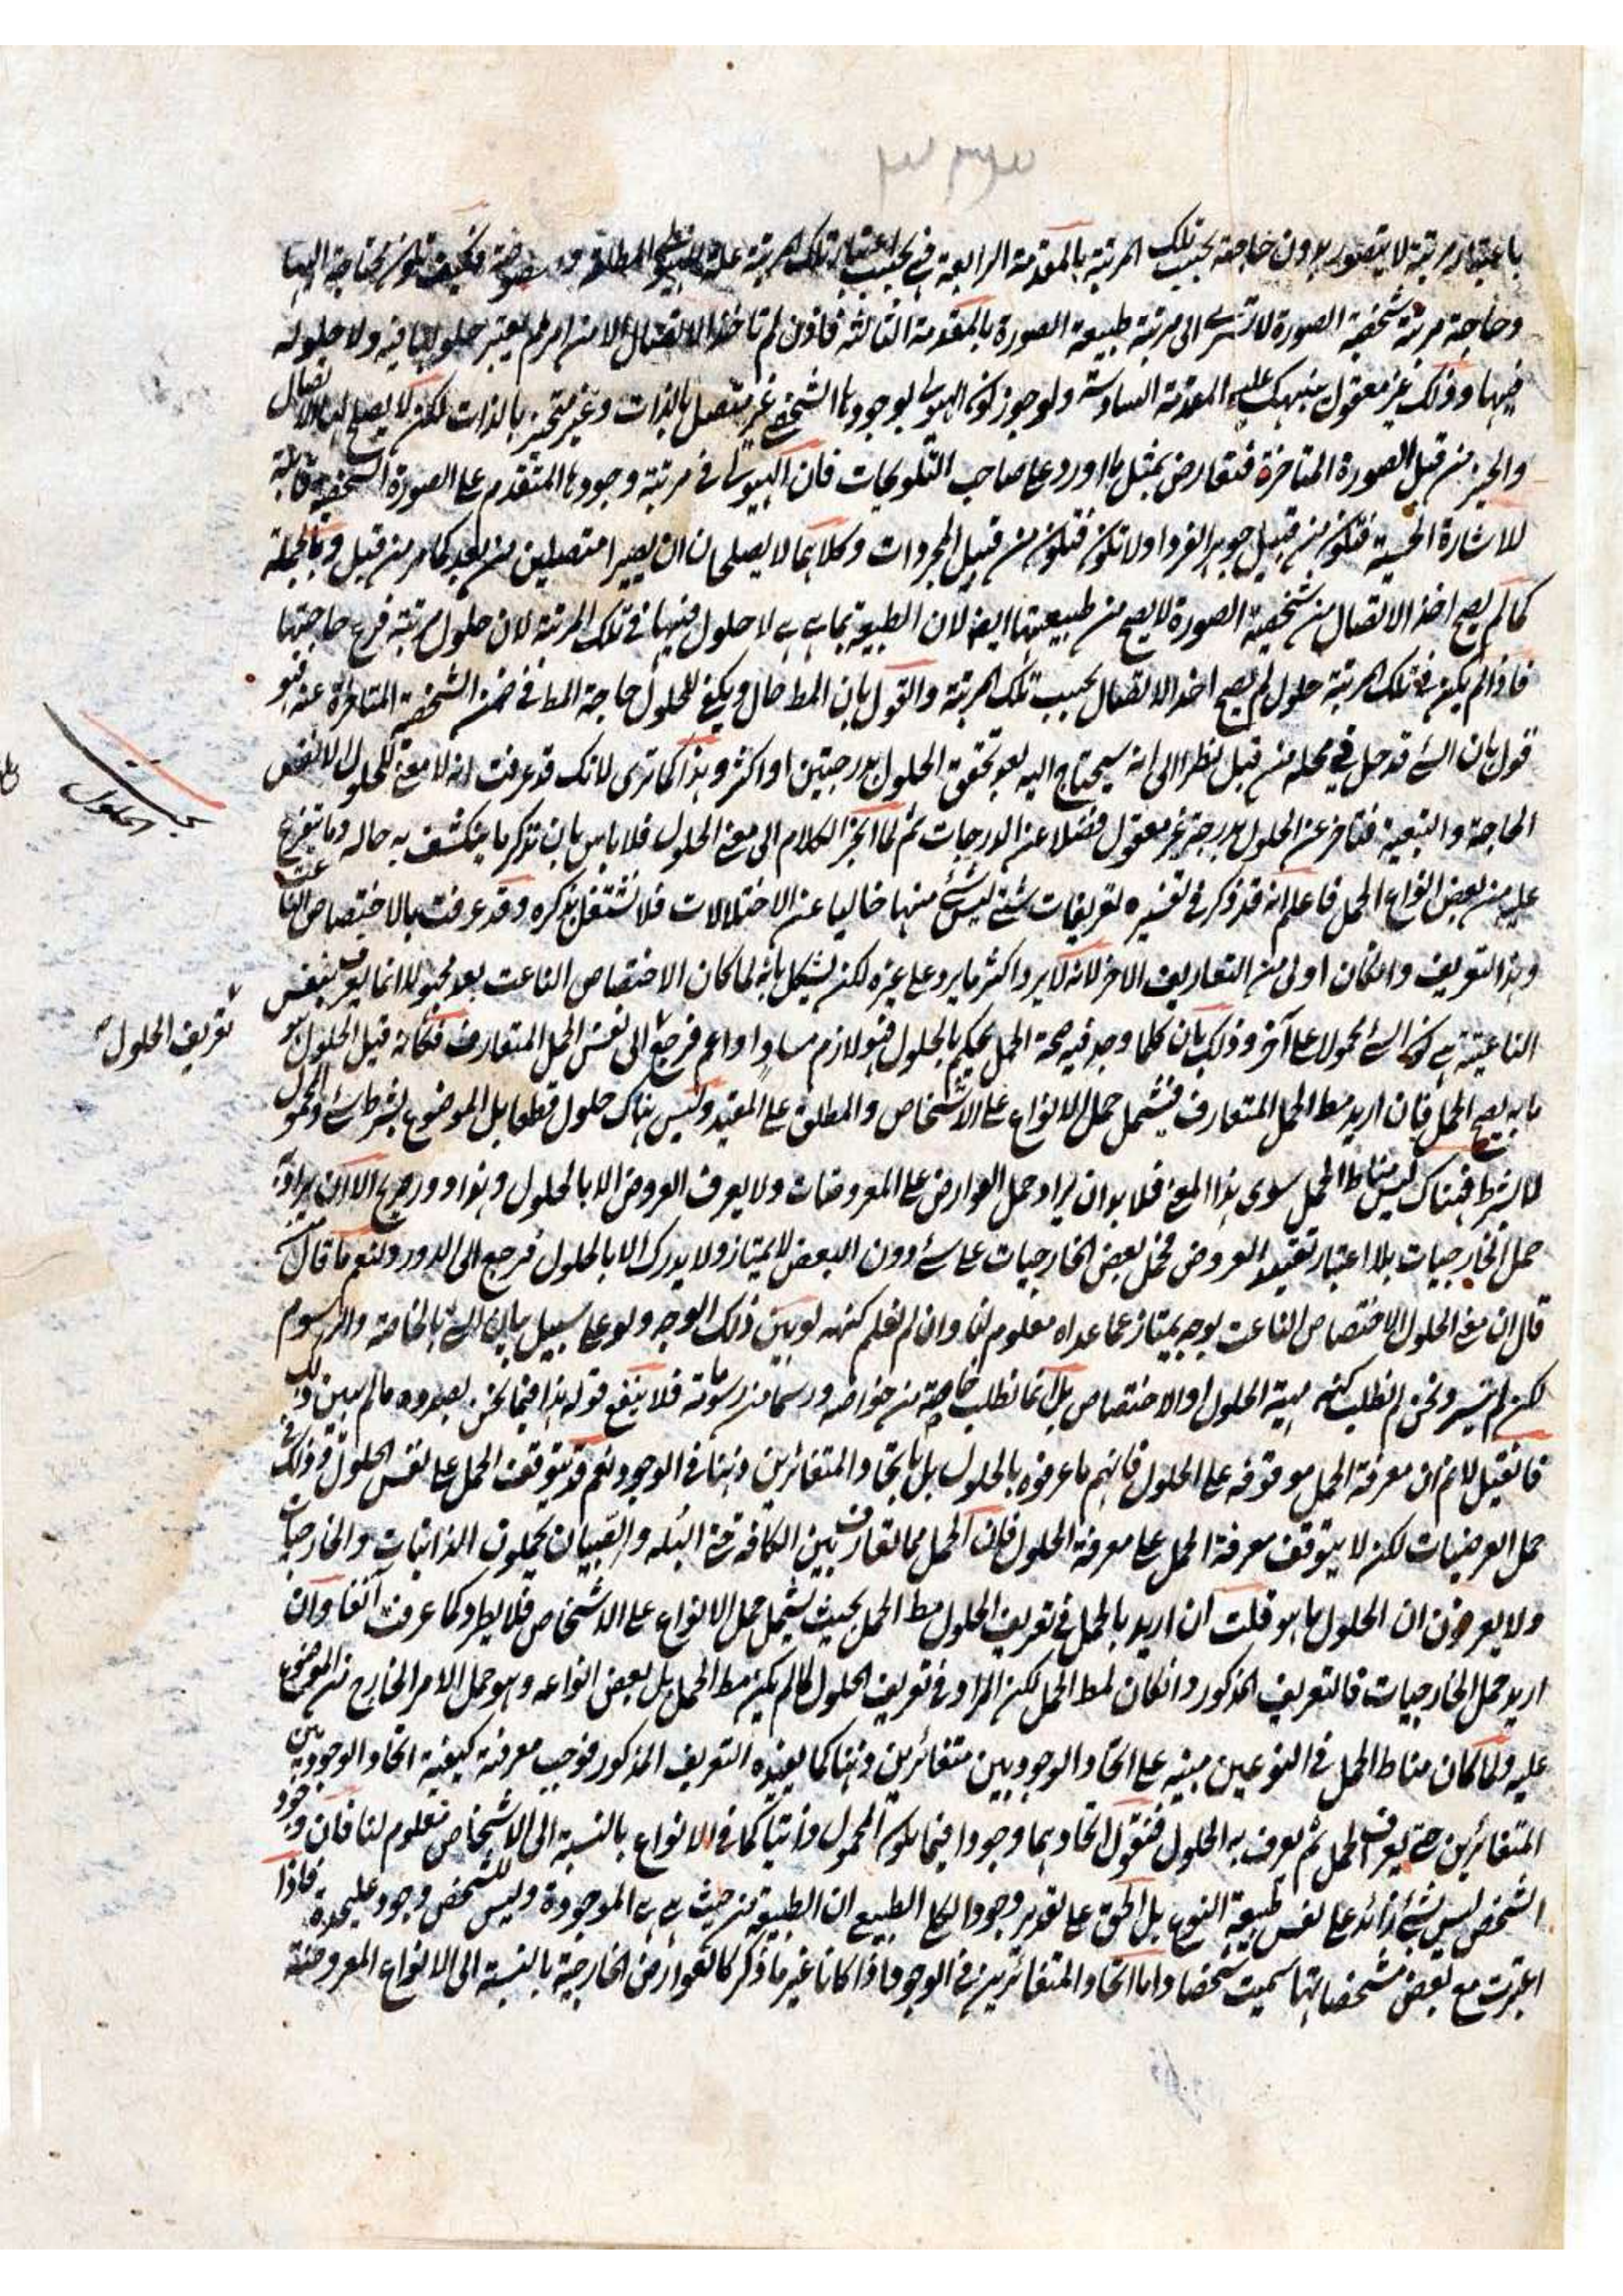 باعتبار مرتبة لا يتصور بدون حاجة بحسب تلك المرتبة بالمقدمة الرابعة فهي بحسب اعتبار تلك المرتبة علة للهيولى المطلقة فكيف تكون محتاجة اليها
وحاجة مرتبة شخصية الصورة لا تسري الى مرتبة طبيعة الصورة بالمقدمة الثالثة فاذن لم تاخذ الاتصال الا من امر لم يعتبر حلولها فيه ولا حلوله
فيها وذلك غير معقول ينبهك عليه المقدمة السادسة ولو جوز كون الهيولى بوجودها الشخصي غير متصل بالذات وغير متحيز بالذات لكن لا يصلح لها الاتصال
والحيز من قبل الصورة المتاخرة فتعارض بمثل ما اورد على صاحب التلويحات فان الهيولى في مرتبة وجودها المتقدم على الصورة الشخصية قابلة
للاشارة الحسية فتكون من قبيل جوهر الفرد او لا تكون فتكون من قبيل المجردات وكلاهما لا يصلحان ان يصيرا متصلين من بعد كما مر من قبل وبالجملة
كما لم يصح اخذ الاتصال من شخصية الصورة لا يصح من طبيعتها ايضا لان الطبيعة بما هي هي لا حلول فيها في تلك المرتبة لان حلول مرتبة فرع حاجتها
فاذا لم يكن في تلك المرتبة حلول لم يصح اخذ الاتصال بحسب تلك المرتبة والقول بان المط حال ويكفي للحلول حاجة المط في ضمن الشخصية المتاخرة عنه فهو
قول بان الشئ قد حل في محله من قبل نظرا الى انه سيحتاج اليه بعد تحقق الحلول بدرجتين او اكثر وهذا كما ترى لانك قد عرفت انه لا معنى للحلول الا نفس
الحاجة والتبعية فتاخر عن الحلول بدرجة غير معقول فضلا عن الدرجات ثم لما انجر الكلام الى معنى الحلول فلا باس بان نذكر ما ينكشف به حاله وما يتفرع
عليه من بعض انواع الحمل فاعلم انه قد ذكر في تفسيره تعريفات شتى ليس شئ منها خاليا عن الاختلالات فلا نشتغل بذكره وقد عرفت بالاختصاص الناعت
وهذا التعريف وان كان اولى من التعاريف الاخر لانه لا يرد اكثر ما يرد على غيره لكن يشكل بانه لما كان الاختصاص الناعت بعد مجهولا انما يعرف بنفس
الناعتية هي كون الشئ محمولا على آخر وذلك بان كلما وجد فيه صحة الحمل يحكم بالحلول فهو لازم مساو او اعم فرجع الى نفس الحمل المتعارف فكانه قيل الحلول هو
ما به يصح الحمل فان اريد مط الحمل المتعارف فيشمل حمل الانواع على الاشخاص والمطلق على المقيد وليس هناك حلول قطعا بل الموضوع بشرط شئ والمحمول
لا بشرط فهناك ليس مناط الحمل سوى هذا المعنى فلا بد ان يراد حمل العوارض على المعروضات ولا يعرف العروض الا بالحلول وهذا دور صريح الا ان يراد به
حمل الخارجيات بلا اعتبار تقييد العروض فحمل بعض الخارجيات على شئ دون البعض لا يمتاز ولا يدرك الا بالحلول فرجع الى الدور ولنعم ما قال من
قال ان معنى الحلول الاختصاص الناعت بوجه يمتاز عما عداه معلوم لنا وان لم نعلم كنهه لو بين ذلك الوجه ولو على سبيل بيان الشئ بالخاصة والرسوم
لكن لم يتيسر ونحن لم نطلب كنه مهية الحلول او الاختصاص بل انما نطلب خاصة من خواصه ورسما من رسوماته فلا ينفع قوله هذا فيما نحن بصدده ما لم يبين ذلك
فان قيل لا نم ان معرفة الحمل موقوفة على الحلول فانهم ما عرفوه بالحلول بل باتحاد المتغائرين ذهنا في الوجود نعم قد يتوقف الحمل على نفس الحلول وذلك في
حمل العرضيات لكن لا يتوقف معرفة الحمل على معرفة الحلول فان الحمل مما تعارف بين الكافة حتى البله والصبيان يحملون الذاتيات والخارجيات
ولا يعرفون ان الحلول ما هو قلت ان اريد بالحمل في تعريف الحلول مط الحمل بحيث يشمل حمل الانواع على الاشخاص فلا يطرد كما عرفت آنفا وان
اريد حمل الخارجيات فالتعريف المذكور وان كان لمط الحمل لكن المراد في تعريف الحلول لما لم يكن مط الحمل بل بعض انواعه وهو حمل الامر الخارج من الموضوع
عليه ولما كان مناط الحمل في النوعين مبنيه على اتحاد الوجود بين متغائرين ذهنا كما يفيده التعريف المذكور فوجب معرفة كيفية اتحاد الوجود بين
المتغائرين حتى يعرف الحمل ثم يعرف به الحلول فنقول اتحادهما وجودا فيما يكون المحمول ذاتيا كما في الانواع بالنسبة الى الاشخاص معلوم لنا فان وجود
الشخص ليس شئ زائد على نفس طبيعة النوع بل الحق على تقدير وجود الكلي الطبيعي ان الطبيعة من حيث هي هي الموجودة وليس للشخص وجود عليحدة فاذا
اعتبرت مع بعض مشخصاتها سميت شخصا واما اتحاد المتغائرين في الوجود اذا كانا غير ما ذكر كالعوارض الخارجية بالنسبة الى الانواع المعروضة
بحث الحلول
تعريف الحلول